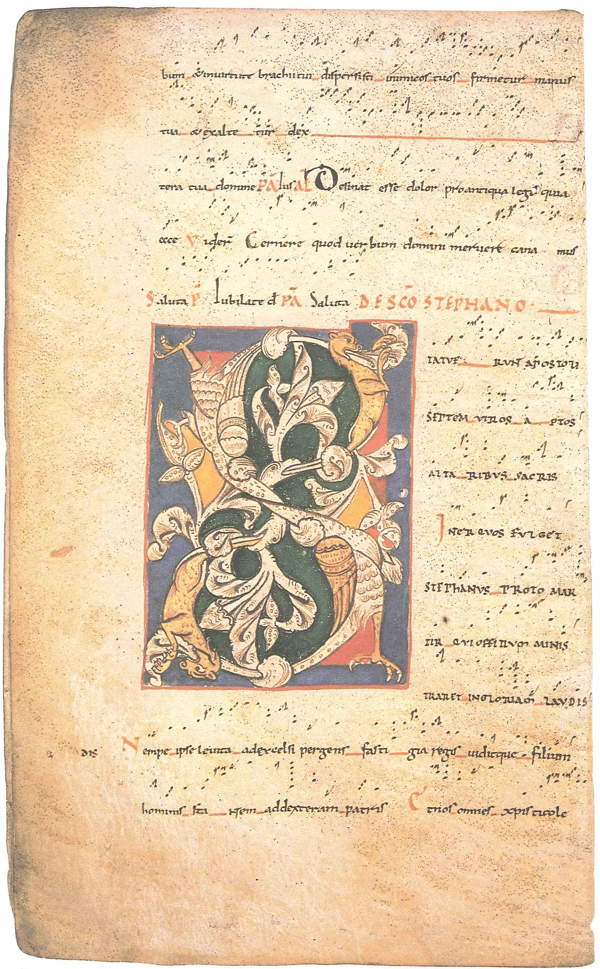 bum & inuirtute brachii tui dispersisti inimicos tuos firmetur manus
tua & exalte tur dex
tera tua domine PA lus AL Desinat esse dolor pro antiqua lege quia
ecce V ider Cernere quod uerbum domini meruere cana mus
Saluta P Iubilate d PA Saluta DE SCO STEPHANO
TATUE RUNT APOSTOLI
SEPTEM VIROS A PTOS
ALTA RIBUS SACRIS
INER QUOS FULGET
STEPHANUS PROTO MAR
TIR QUI OFFITIUM MINIS
TRARET IN GLORIAM LAUDIS
DIS Nempe ipse leuita ad excelsi pergens fasti gia regis uiditque filium
hominis sta ntem ad dexteram patris Et nos omnes xpisticole